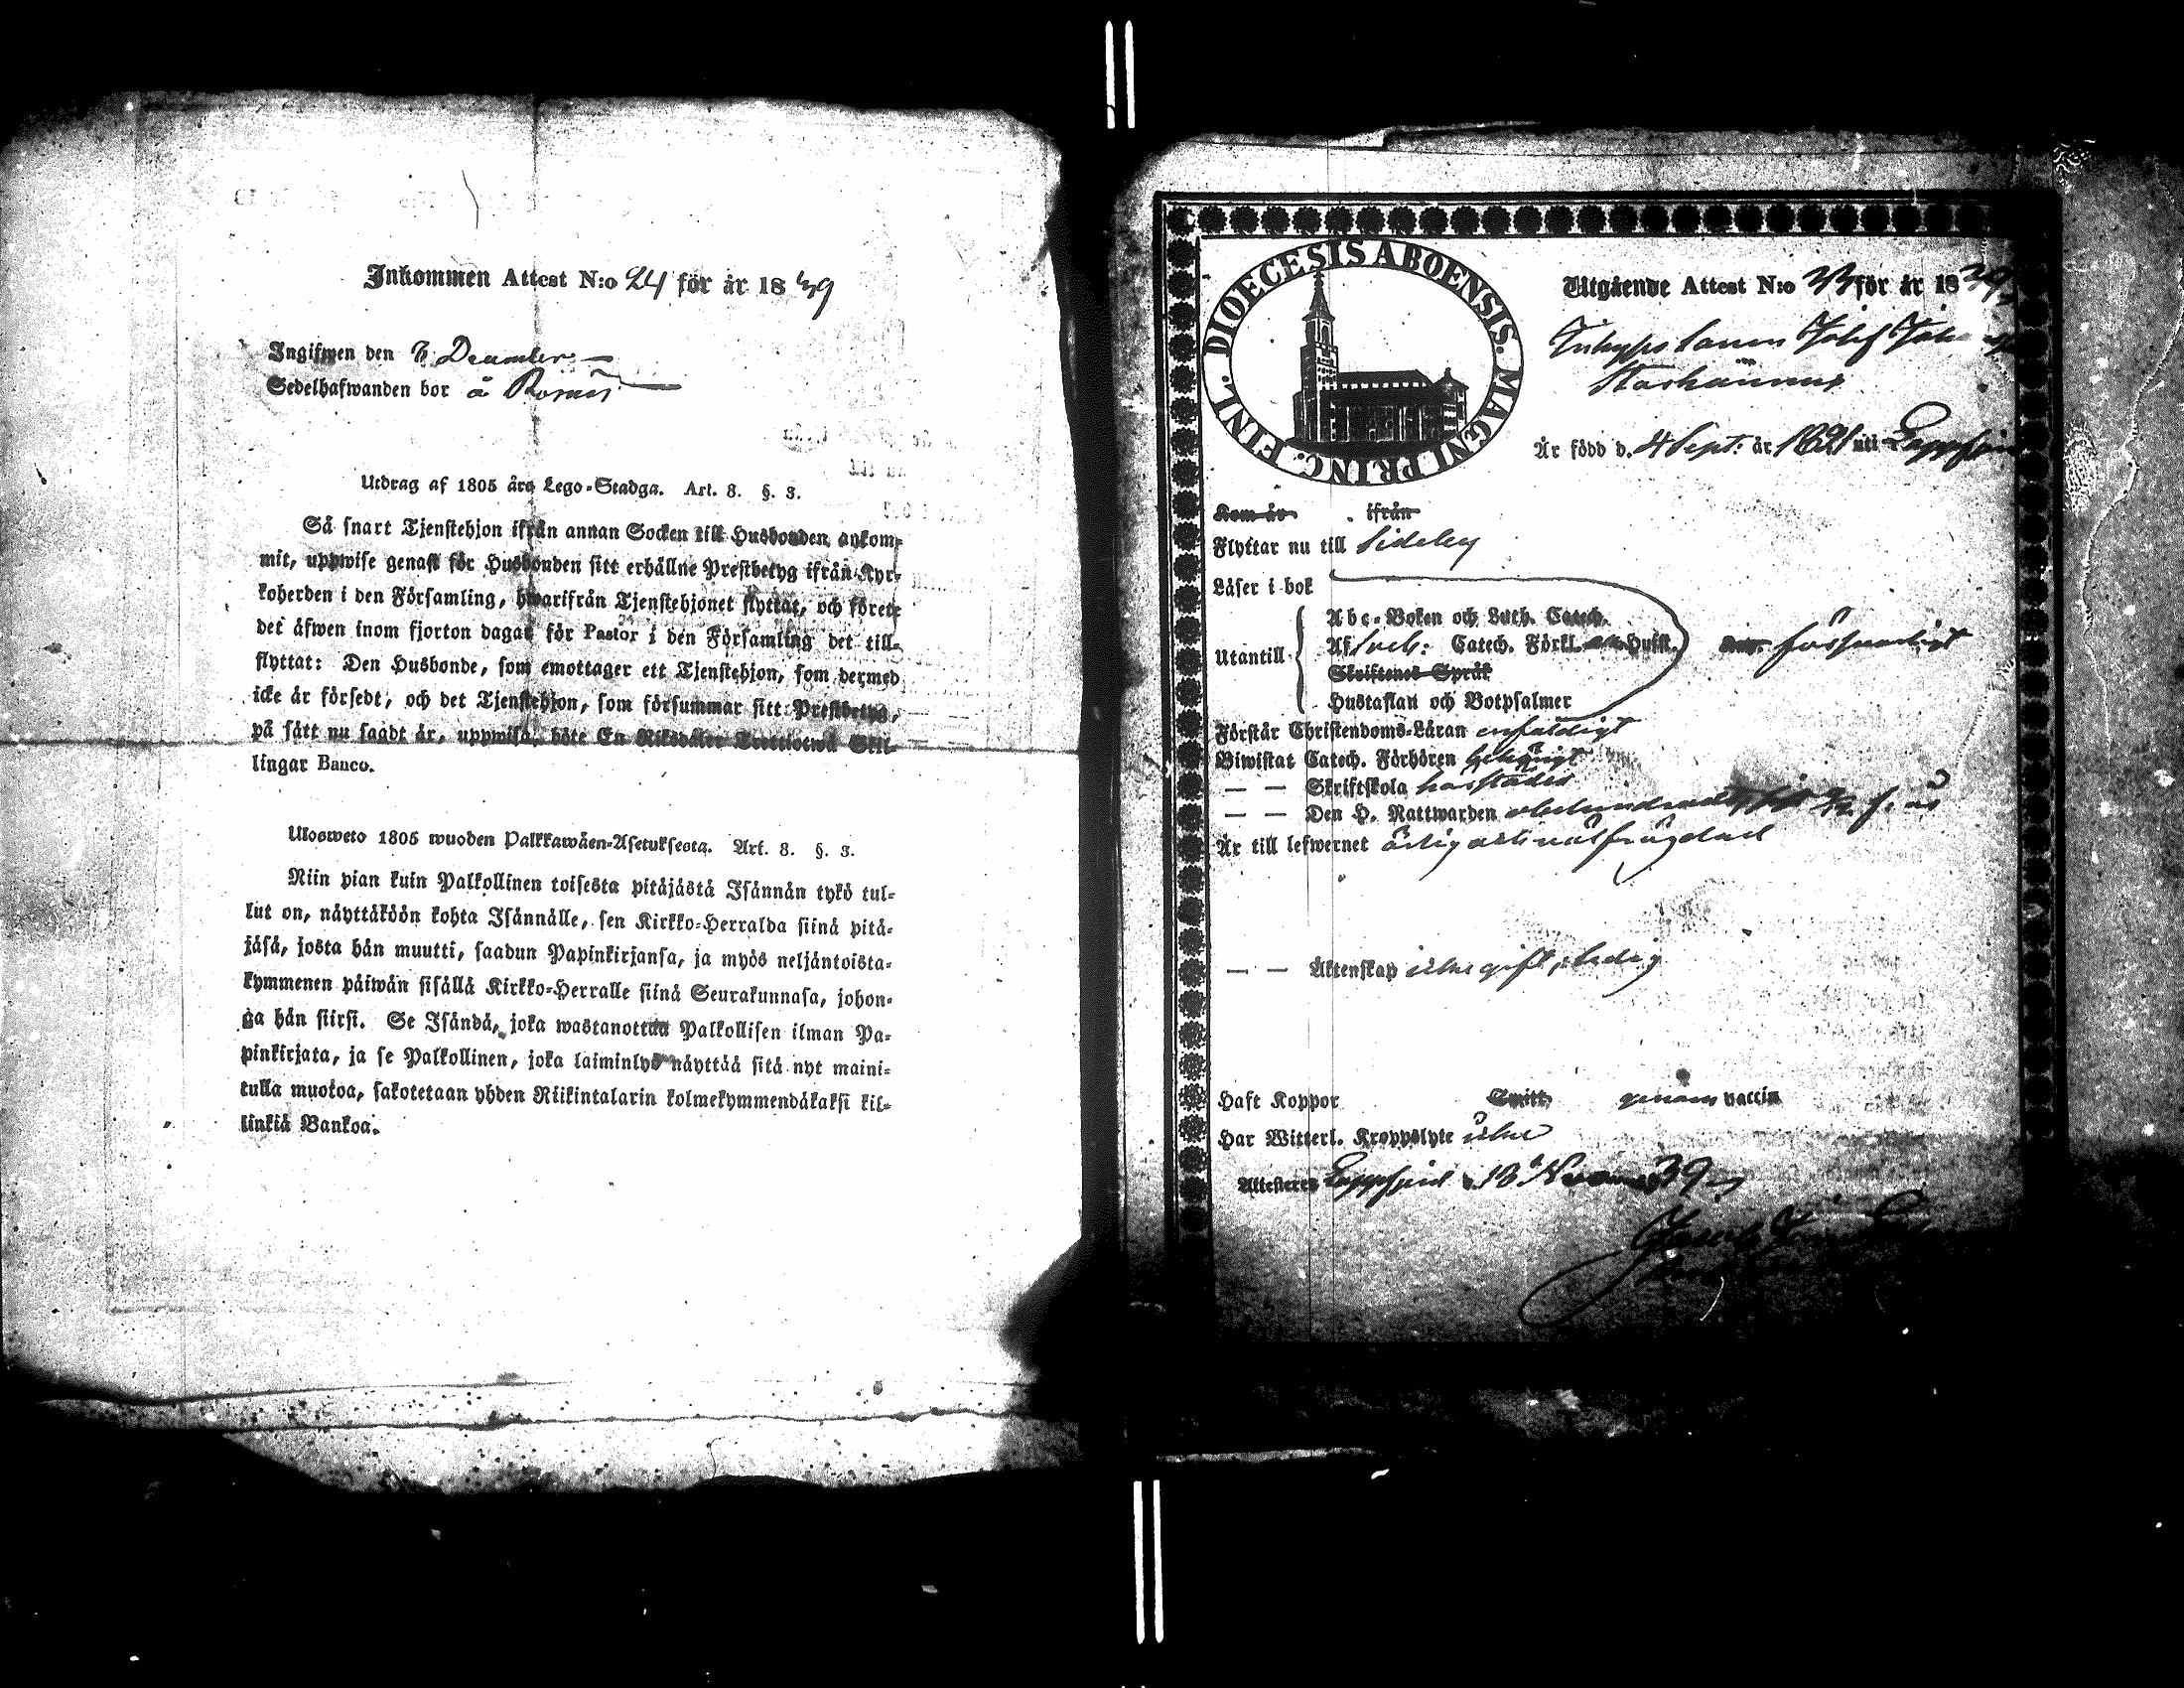 Inkommen Attest N:o 24 för år 1839
Ingifwen den 8 December
Sedelhafwanden bor å
Utdrag af 1805 års Lego-Stadga. Art. 8. §. 3.
Så snart Tjenstehjon ifrån annan Socken till Husbonden ankom-
mit, uppwise genast för Husbonden sitt erhållne Prestbetyg ifrån Kyr-
koherden i den Församling, hwarifrån Tjenstehjonet flyttat, och förete
det äfwen inom fjorton dagar för Pastor i den Församling det till-
flyttat: Den Husbonde, som emottager ett Tjenstehjon, som dermed
icke är försedt, och det Tjenstehjon, som försummar sitt Prestbetyg,
på sätt nu sagdt är, uppwisa, böte En Riksdaler Trettiotwå Skil-
lingar Banco.
Ulosweto 1805 wuoden Palkkawäen-Asetuksesta. Art. 8. §. 3.
Niin pian kuin Palkollinen toisesta pitäjästä Isännän tykö tul-
lut on, näyttäköön kohta Isännälle, sen Kirkko-Herralda siinä pitä-
jäsä, josta hän muutti, saadun Papinkirjansa, ja myös neljäntoista-
kymmenen päiwän sisällä Kirkko-Herralle siinä Seurakunnasa, johon-
ga hän siirsi. Se Isändä, joka wastanottaa Palkollisen ilman Pa-
pinkirjata, ja se Palkollinen, joka laiminlyö näyttää sitä nyt maini-
tulla muotoa, sakotetaan yhden Riikintalarin kolmekymmendäkaksi kil-
linkiä Bankoa.
DIOECESIS ABOENSIS. MAGNI PRINC. FINL.
Utgående Attest N:o 33 för år 1839
Josef
Är född d. 4 Sept: år 1821 uti Lappfjärd
Kom år ifrån
Flyttar nu till Sideby
Läser i bok
Utantill
Abc-Boken och Luth. Catech.
Af Sveb: Catech. Förkl. Hufst.
Skriftenes Språk
Hustaflan och Botpsalmer
försvarligt
Förstår Christendoms-Läran enfaldigt
Biwistat Catech. Förhören behörigt
— — Skriftskola härstädes
— — Den H. Nattwarden
Är till lefwernet ärlig och välfrägdad
— — Äktenskap icke gift, ledig
Haft Koppor Smitt genom vaccin
Har Witterl. Kroppslyte icke
Attesterer Lappfjerd 18 39